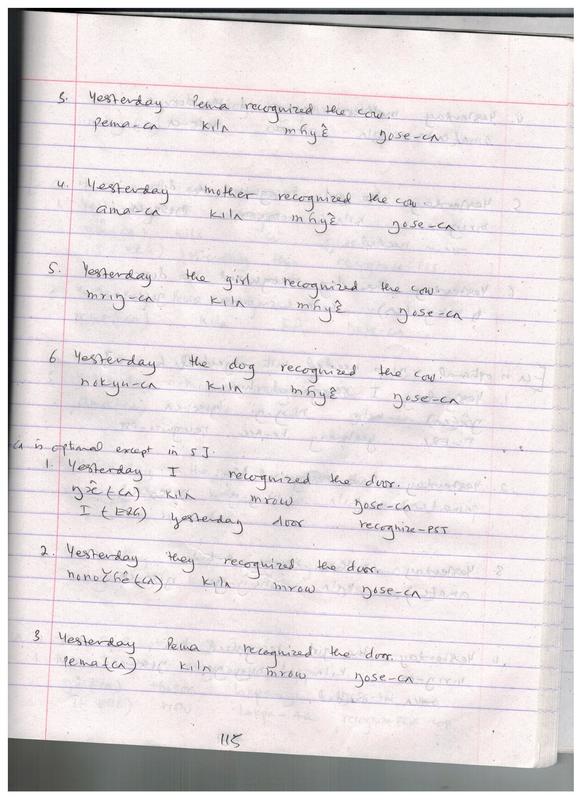 3. Yesterday Pema recognized the cow.
pema-cʌ kilʌ mɦyɛ̂ ŋose-cʌ
4. Yesterday mother recognized the cow
ama-cʌ kilʌ mɦyɛ̂ ŋose-cʌ
5. Yesterday the girl recognized the cow
mrıŋ-cʌ kilʌ mɦyɛ̂ ŋose-cʌ
6 Yesterday the dog recognized the cow.
nokyu-cʌ kilʌ mɦyɛ̂ ŋose-cʌ
cʌ is optional except in 5].
1. Yesterday I recognized the door.
(cʌ) kilʌ mrow ŋose-cʌ
I (ERG) yesterday door recognize-PST
2. Yesterday they recognized the door.
(cʌ) kilʌ mrow ŋose-cʌ
3 Yesterday Pema recognized the door.
pema(cʌ) kilʌ mrow ŋose-cʌ
115